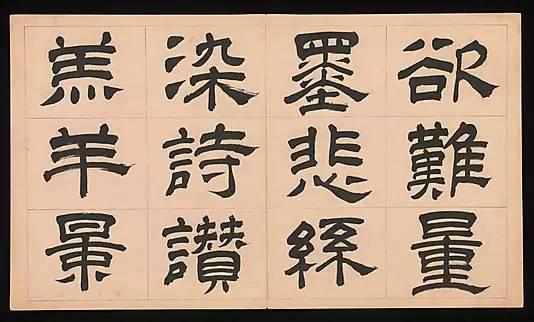 欲難量
墨悲絲
染詩讚
羔羊景